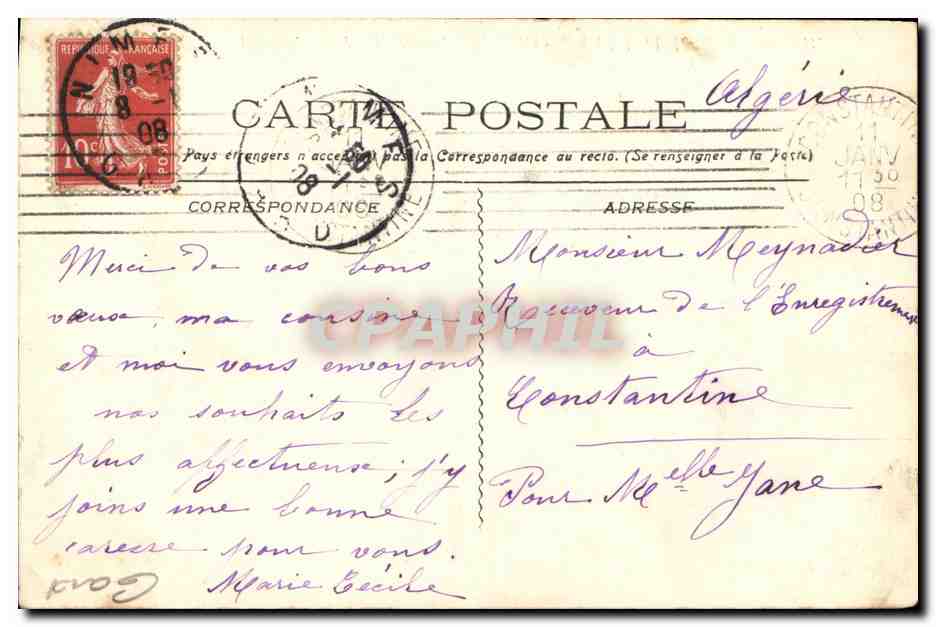 REPUBLIQUE FRANÇAISE
10c POSTES
NIMES
18 30
8 -1
08
Algérie
CARTE POSTALE
NIMES
CONSTANTINE
11
JANV
11 30
08
CONSTANTINE
Pays étrangers n'acceptant pas la Correspondance au recto. (Se renseigner à la Poste)
CORRESPONDANCE
ADRESSE
Merci de vos bons
vœux, ma cousine
et moi vous envoyons
nos souhaits les
plus affectueuse; j'y
joins une bonne
caresse pour vous.
Marie Cécile
Monsieur Meynadier
Receveur de l'Enregistrement
à
Constantine
Pour Melle Jane
Gard
CPAPHIL